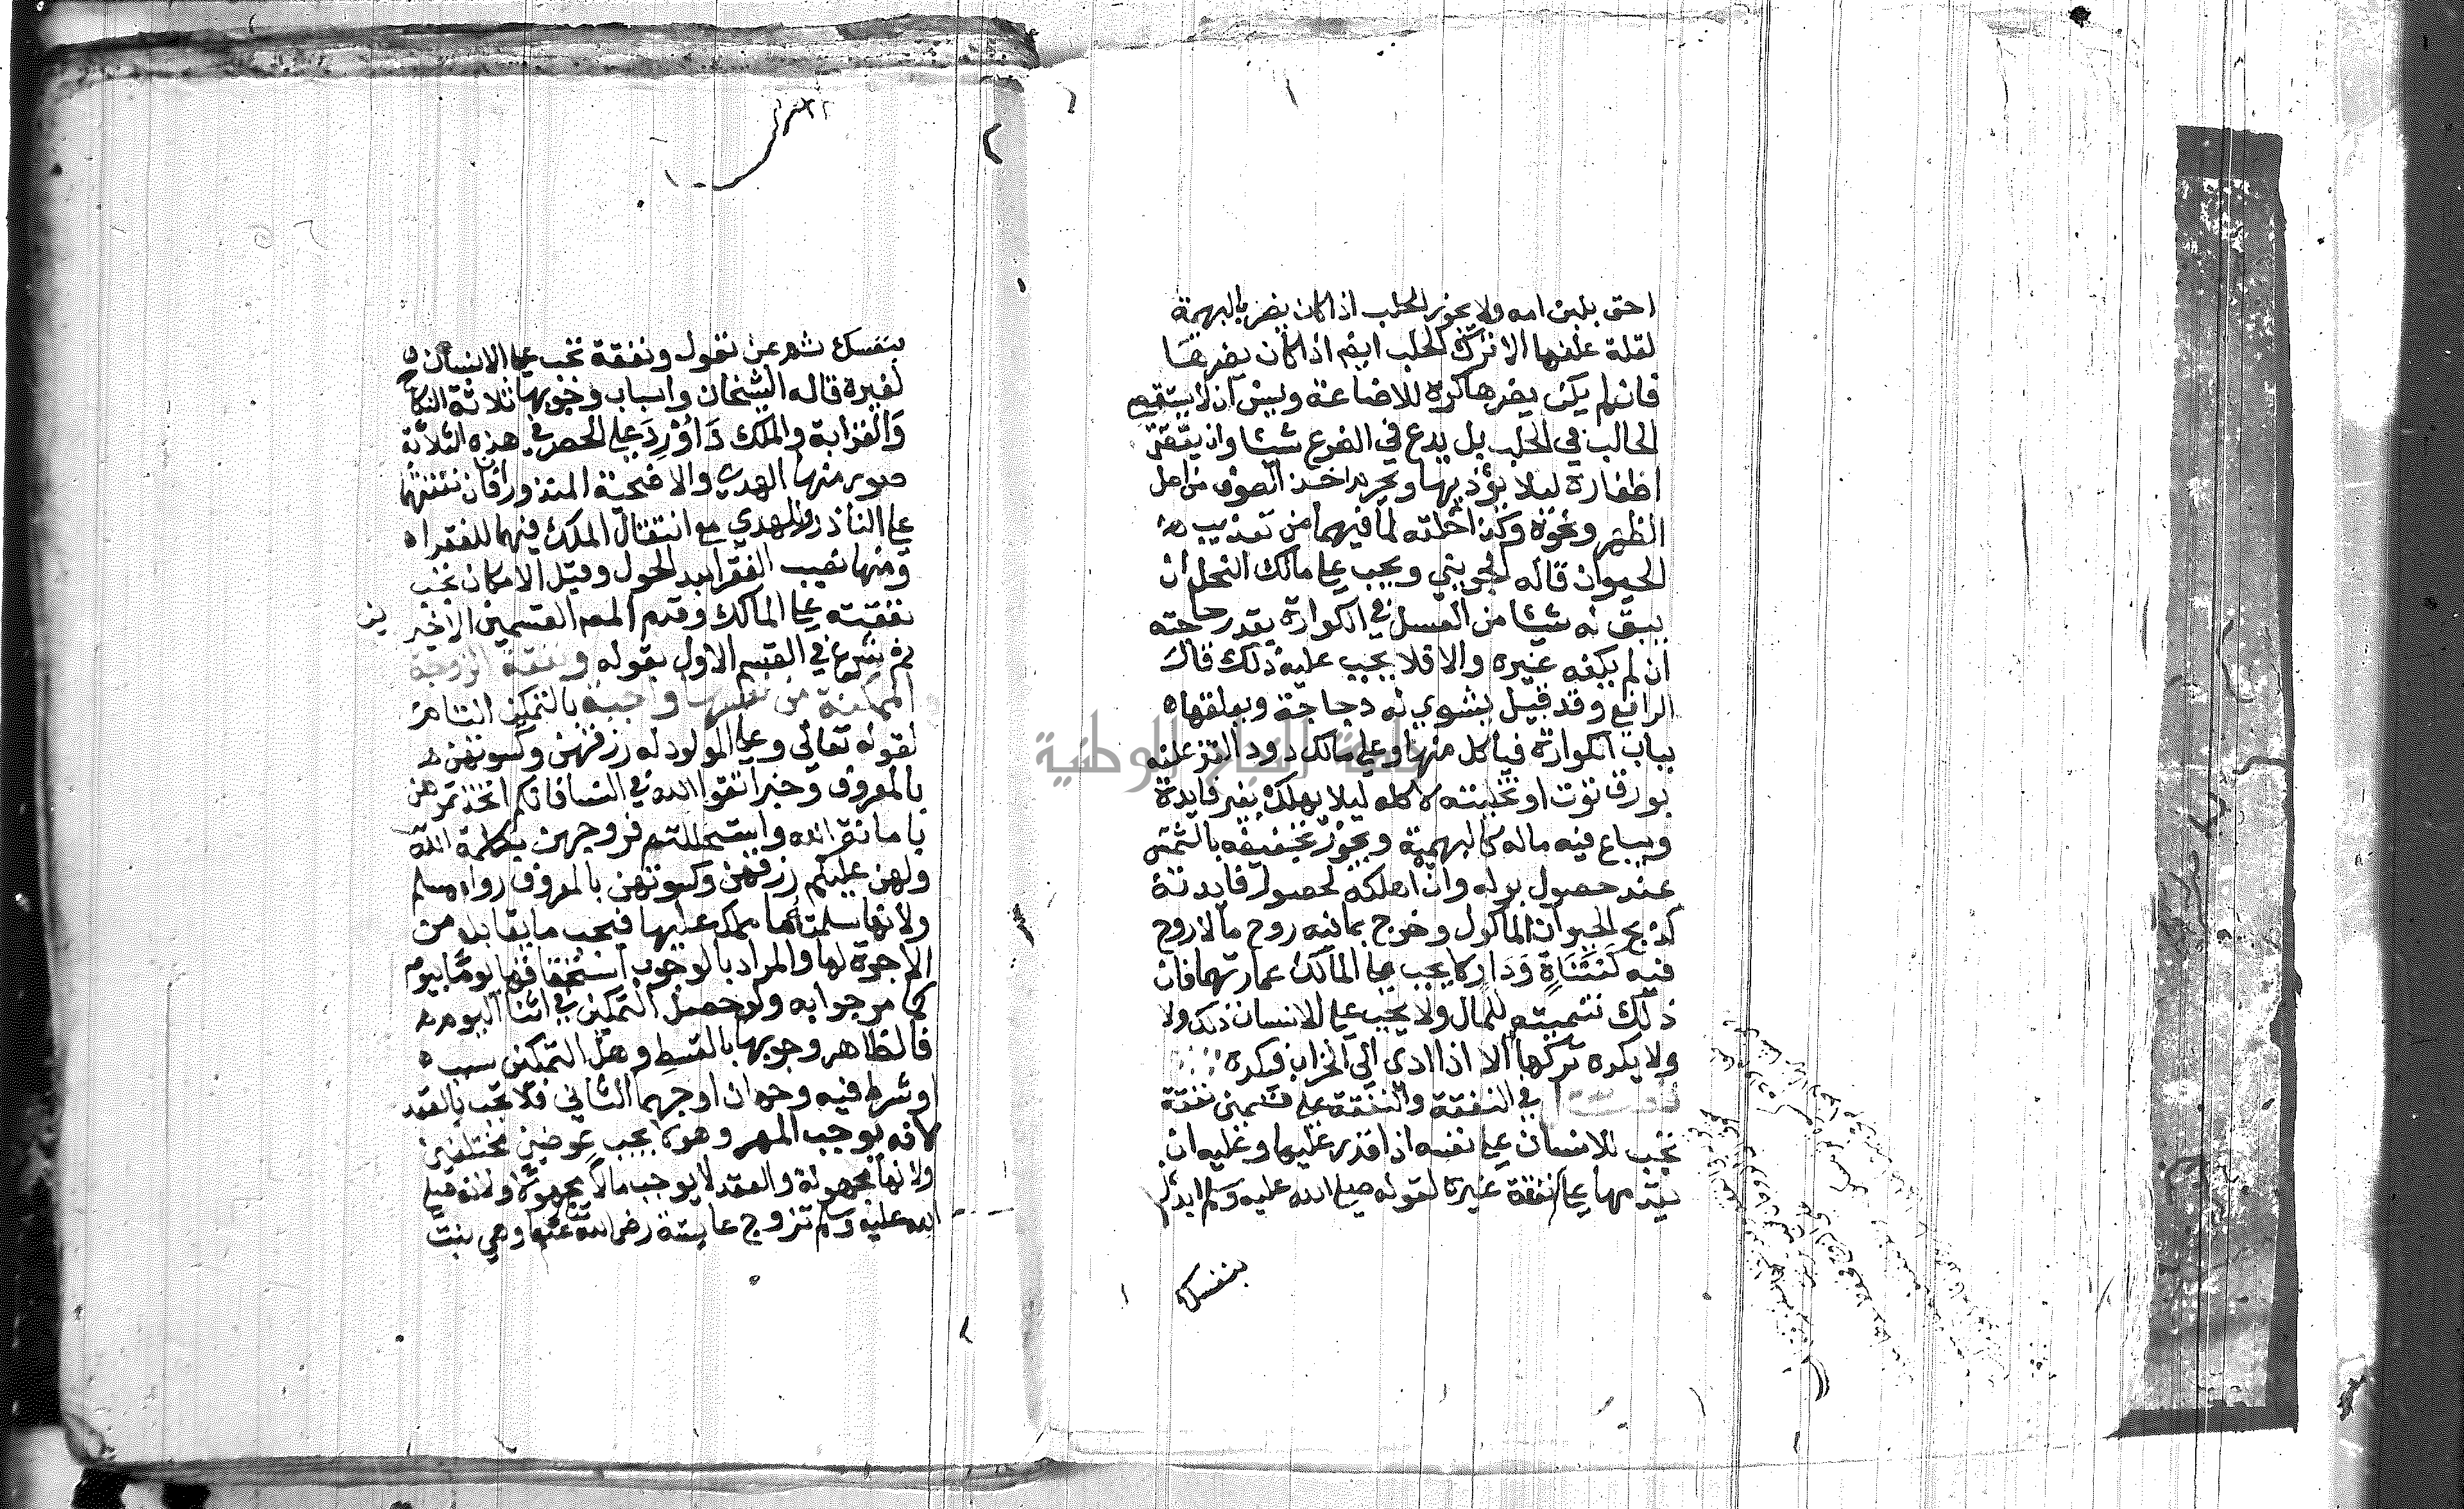 احق بلبن امه ولا يجوز الحلب اذا كان يضر بالبهيمة
لقلة علفها الا ترك الحلب ايضا اذا كان يضرها
فان لم يكن يضرها كره للاضاعة ويسن ان لا يستقصي
الحالب في الحلب بل يدع في الضرع شيا وان يقص
اظفاره ليلا يؤذيها ويحرم اخذ الصوف من اصل
الظهر ونحوه وكذا حلقه لما فيهما من تعذيب
الحيوان قاله الجويني ويجب على مالك النحل ان
يبقي له شيا من العسل في الكوارة بقدر حاجته
ان لم يكفه غيره والا فلا يجب عليه ذلك قال
الرافعي وقد قيل يشوي له دجاجة ويعلقها
بباب الكوارة فياكل منها وعلى مالك دود القز علفه
بورق توت او تخليته لاكله ليلا يهلك بغير فايدة
ويباع فيه ماله كالبهيمة ويجوز تجفيفه بالشمس
عند حصول نوله وان اهلكه لحصول فايدته
كذبح الحيوان الماكول وخرج بما فيه روح ما لا روح
فيه كقناة ودار لا يجب على المالك عمارتهما فان
ذلك تنمية للمال ولا يجب على الانسان ذلك ولا
ولا يكره تركها الا اذا ادى الى الخراب فيكره
في النفقة والنفقة على قسمين نفقة
تجب للانسان على نفسه اذا قدر عليها وعليه ان
يقدمها على نفقة غيره لقوله صلى الله عليه وسلم ابدا
بنفسك
بنفسك ثم بمن تعول ونفقة تجب على الانسان
لغيره قاله الشيخان واسباب وجوبها ثلاثة النكاح
والقرابة والملك واورد على الحصر في هذه الثلاثة
صور منها الهدي والاضحية المنذوران نفقتهما
على الناذر والمهدي مع انتقال الملك فيهما للفقرا
ومنها نصيب الفقرا بعد الحول وقبل الامكان تجب
نفقته على المالك وقدم المصه القسمين الاخيرين
ثم شرع في القسم الاول بقوله ونفقة الزوجة
الممكنة من نفسها واجبة بالتمكين التام
لقوله تعالى وعلى المولود له رزقهن وكسوتهن
بالمعروف وخبر اتقوا الله في النسا فانكم اخذتموهن
بامانة الله واستحللتم فروجهن بكلمة الله
ولهن عليكم رزقهن وكسوتهن بالمعروف رواه مسلم
ولانها سلمت ما ملك عليها فيجب ما يقابله من
الاجرة لها والمراد بالوجوب استحقاقها يوما بيوم
كما مر جوابه ولو حصل التمكين في اثنا اليوم
فالظاهر وجوبها بالقسط وهل التمكين سبب
او شرط فيه وجهان اوجههما الثاني فلا تجب بالعقد
لانه يوجب المهر وهو لا يجب عوضين مختلفين
ولانها مجهولة والعقد لا يوجب مالا مجهولا ولانه صلى
الله عليه وسلم تزوج عايشة رضي الله عنها وهي بنت